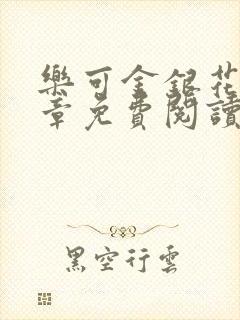 樂可金銀花
章免費閱讀
黑空行雲